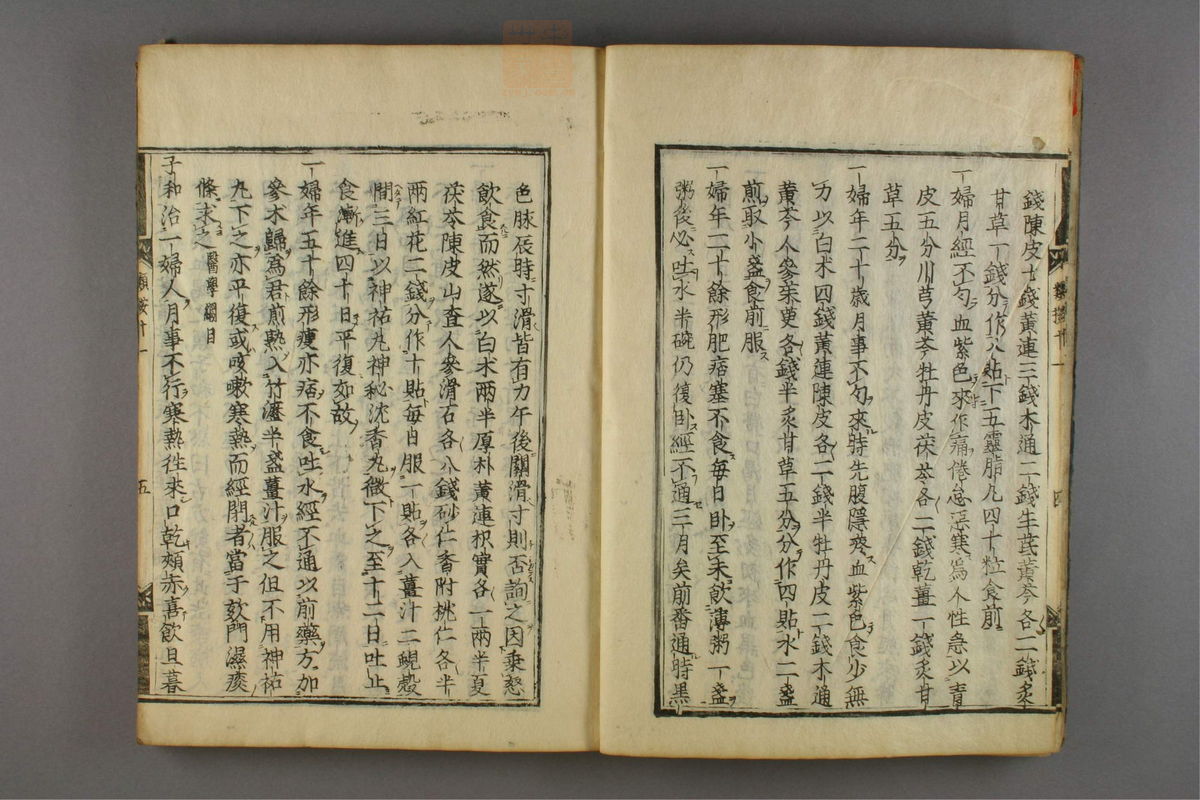 錢陳皮七錢黃連三錢木通二錢生芪黃芩各二錢炙
甘草一錢分作八貼下五靈脂丸四十粒食前
一婦月經不勻血紫色來作痛倦怠惡寒為人性急以青
皮五分川芎黃芩牡丹皮茯苓各二錢乾薑一錢炙甘
草五分
一婦年二十歲月事不勻來時先腹隱疼血紫色食少無
力以白朮四錢黃連陳皮各二錢半牡丹皮二錢木通
黃芩人參茱萸各錢半炙甘草五分分作四貼水二盞
煎取小盞食前服
一婦年二十餘形肥痞塞不食每日卧至未飲薄粥一盞
粥後必吐水半碗仍復卧經不通三月矣前番通時黑
類按十一
四
色脉辰時寸滑皆有力午後關滑寸則否詢之因乘怒
飲食而然遂以白朮兩半厚朴黃連枳實各一兩半夏
茯苓陳皮山查人參滑石各八錢砂仁香附桃仁各半
兩紅花二錢分作十貼每日服一貼各入薑汁二蜆殼
間三日以神祐丸神秘沈香丸微下之至十二日吐止
食漸進四十日平復如故
一婦年五十餘形瘦亦痞不食吐水經不通以前藥方加
參朮歸為君煎熟入竹瀝半盞薑汁服之但不用神祐
丸下之亦平復或咳嗽寒熱而經閉者當于欬門濕痰
條求之醫學綱目
子和治一婦人月事不行寒熱往來口乾頰赤喜飲旦暮
類按十一
五